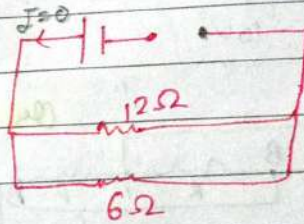 I=0
12Ω
6Ω